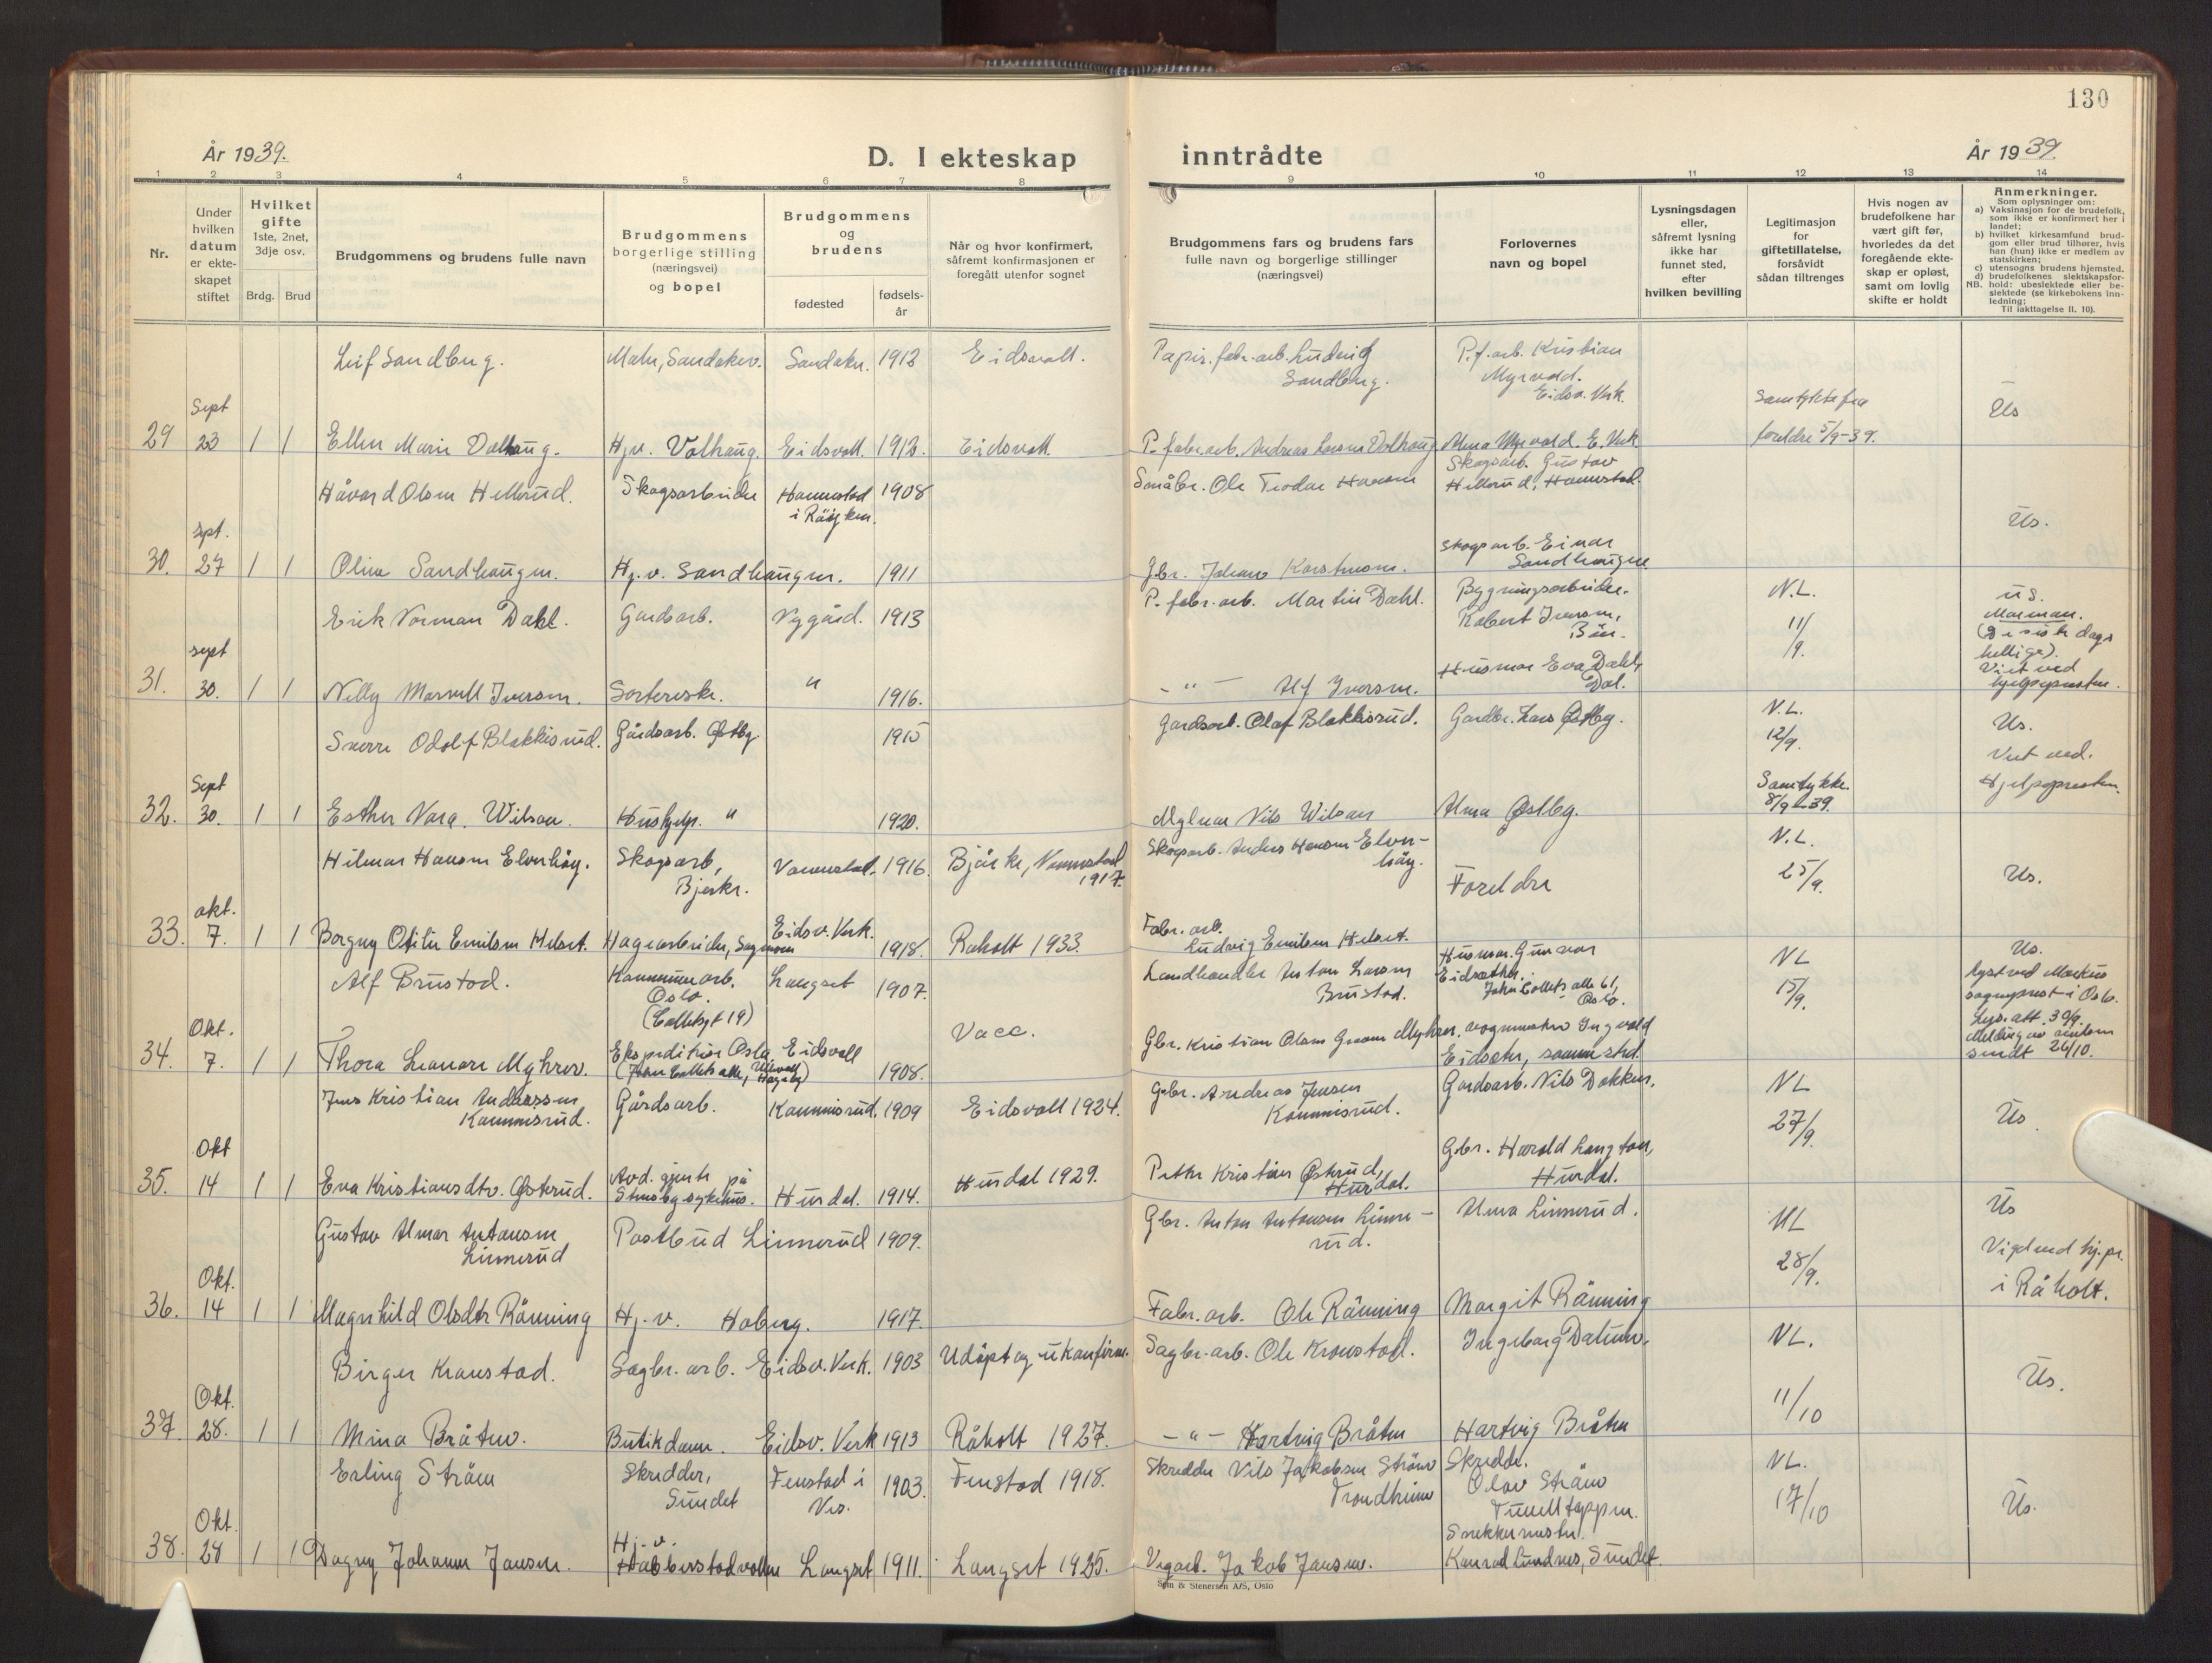 130
År 1939.
D. I ekteskap inntrådte
År 1939.
1 2 3 4 5 6 7 8 9 10 11 12 13 14
Nr.
Under hvilken datum er ekteskapet stiftet
Hvilket gifte 1ste, 2net, 3dje osv.
Brdg. Brud
Brudgommens og brudens fulle navn
Brudgommens borgerlige stilling (næringsvei) og bopel
Brudgommens og brudens
fødested
fødselsår
Når og hvor konfirmert, såfremt konfirmasjonen er foregått utenfor sognet
Brudgommens fars og brudens fars fulle navn og borgerlige stillinger (næringsvei)
Forlovernes navn og bopel
Lysningsdagen eller, såfremt lysning ikke har funnet sted, efter hvilken bevilling
Legitimasjon for giftetillatelse, forsåvidt sådan tiltrenges
Hvis nogen av brudefolkene har vært gift før, hvorledes da det foregående ekteskap er opløst, samt om lovlig skifte er holdt
Anmerkninger.
Som oplysninger om:
a) Vaksinasjon for de brudefolk, som ikke er konfirmert her i landet;
b) hvilket kirkesamfund brudgom eller brud tilhører, hvis han (hun) ikke er medlem av statskirken;
c) utensogns brudens hjemsted.
d) brudefolkenes slektskapsforhold: ubeslektede eller beslektede (se kirkebokens innledning;
NB.
Til iakttagelse II. 10).
Leif Sandberg. Maler, Sandaker. Sandaker. 1913 Eidsvoll. Papir.fabr.arb. Ludvig Sandberg. P.f.arb. Kristian Myrvold. Eidsv. Verk.
Samtykke fra foreldre 5/9-39. Us
29 Sept 23 1 1 Ellen Marie Dalhaug. Hj.v. Valhaug. Eidsvoll. 1913. Eidsvoll. P. fabr.arb. Andreas Larsen Valhaug Alma Myrvold. E. Verk
Håvard Olsen Hellerud. Skogsarbeider Hammerstad i Råsjøen. 1908 Småbr. Ole Teodor Hansen Skogsarb. Gustav Hellerud, Hammerstad.
Us.
30. Sept. 27 1 1 Oline Sandhaugen. Hj.v. Sandhaugen. 1911 Gbr. Johan Karstensen. Skogsarb. Einar Sandhaugen
Erik Norman Dahl. Gardsarb. Nygård. 1913 P. fabr.arb. Martin Dahl. Bygningsarbeider Robert Iversen, Bøn. N.L. 11/9. Us.
Mormon. (De siste dags hellige). Viet ved hjelpepresten.
31. Sept 30. 1 1 Nelly Marvell Iversen. Sortererske. " 1916. - " - Alf Iversen. Husmor Eva Dahl, Dal.
Sverre Odolf Blakkisrud. Gårdsarb. Østby 1915 Gardsarb. Olaf Blakkisrud. Gardbr. Lars Østby. N.L. 12/9. Us.
Viet ved. Hjelpepresten.
32. Sept 30. 1 1 Esther Nora. Wilson. Hushjelp. " 1920. Mylnar Nils Wilson Alma Østby. Samtykke. 8/9-39.
Hilmar Hansen Elverhøy. Skogsarb, Bjerke. Nannestad. 1916. Bjørke, Nannestad 1917. Skogsarb. Anders Hansen Elverhøy. Foreldre N.L. 25/9. Us.
33. okt. 7. 1 1 Borgny Otilie Emilsen Helset. Hagearbeider, Sagmoen Eidsv. Verk. 1918. Råholt 1933 Fabr. arb. Ludvig Emilsen Helset.
Alf Brustad. Kommunearb. Oslo. (Colletsgt 19) Langset 1907. Landhandler Anton Larsen Brustad. Husmor. Gunvor Eidsæther. John Collets alle 61, Oslo. NL 15/9. Us.
lyst ved Markus sogneprest i Oslo. Lys.att. 30/9. Melding om vielsen sendt 26/10.
34. Okt. 7. 1 1 Thora Leonore Myhrer. Ekspeditrise Oslo (John Collets alle, Ullevål Hageby) Eidsvoll 1908. Vacc. Gbr. Kristian Olsen Grasm Myhrer. vognmester Ingvald Eidsæter, samme sted.
Jens Kristian Andreassen Kammisrud. Gårdsarb. Kammisrud. 1909 Eidsvoll 1924. Gbr. Andreas Jensen Kammisrud. Gardsarb. Nils Dokken. NL 27/9. Us.
35. Okt 14 1 1 Eva Kristiansdtr. Østerud. Avd. gjente på Stensby sykehus. Hurdal. 1914. Hurdal 1929. Petter Kristian Østerud, Hurdal. Gbr. Harald Langton, Hurdal.
Gustav Almar Antonsen Linnerud Postbud Linnerud 1909. Gbr. Anton Antonsen Linnerud. Alma Linnerud. NL 28/9. Us
Vigd ved hj.pr. i Råholt.
36. Okt. 14 1 1 Magnhild Olsdtr Rønning Hj.v. Hoberg. 1917. Fabr.arb. Ole Rønning Margit Rønning
Birger Kronstad. Sagbr.arb. Eidsv. Verk. 1903 Udøpt og ukonfirm. Sagbr.arb. Ole Kronstad. Ingeborg Dalum. NL. 11/10 Us.
37. Okt. 28. 1 1 Mina Bråten. Butikdame. Eidsv. Verk 1913 Råholt 1927. - " - Hartvig Bråten Hartvig Bråten
Erling Strøm Skredder, Sundet Fenstad i Nes. 1903. Fenstad 1918. Skredder Nils Jakobsen Strøm Trondheim Skredder. Olav Strøm Tunelltoppen. NL. 17/10 Us.
38. Okt. 28 1 1 Dagny Johanne Jansen. Hj.v. Habberstadvollen Langset 1911. Langset 1925. Vegarb. Jakob Jansen. Snekkermester. Konrad Lundnes, Sundet
Sem & Stenersen A/S, Oslo